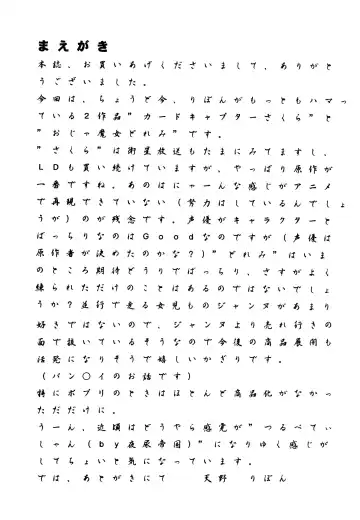 まえがき
本誌、お買いあげくださいまして、ありがと
うございました。
今回は、ちょうど今、りぼんがもっともハマっ
ている2作品”カードキャプターさくら”と
”おじゃ魔女どれみ”です。
”さくら”は衛星放送もたまにみてますし、
LDも買い続けていますが、やっぱり原作が
一番ですね。あのはにゃーんな感じがアニメ
で再現できていない(努力はしているんでしょ
うが)のが残念です。声優がキャラクターと
ばっちりなのはGoodなのですが(声優は
原作者が決めたのかな?)”どれみ”はいま
のところ期待どうりでばっちり、さすがよく
練られただけのことはあるのではないでしょ
うか?並行で走る女児ものジャンヌがあまり
好きではないので、ジャンヌより売れ行きの
面で抜いているそうなので今後の商品展開も
活発になりそうで嬉しいかぎりです。
(バン○イのお話です)
特にポプリのときはほとんど商品化がなかっ
ただだけに。
うーん、近頃はどうやら感覚が”つるぺてぃ
しゃん(by夜尿帝国)”になりゆく感じが
してちょいと気になっています。
では、あとがきにて 天野 りぼん